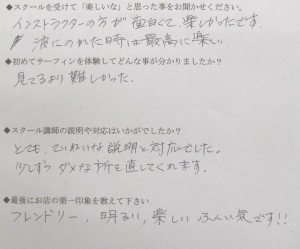 ◆スクールを受けて「楽しいな」と思った事をお聞かせください。
インストラクターの方が面白くて、楽しかったです。
波にのれた時は最高に楽しい
◆初めてサーフィンを体験してどんな事が分かりましたか?
見てるより難しかった。
◆スクール講師の説明や対応はいかがでしたか?
とても、ていねいな説明と対応でした。
少しずつダメな所を直してくれます。
◆最後にお店の第一印象を教えて下さい
フレンドリー, 明るい, 楽しい ふんい気です!!